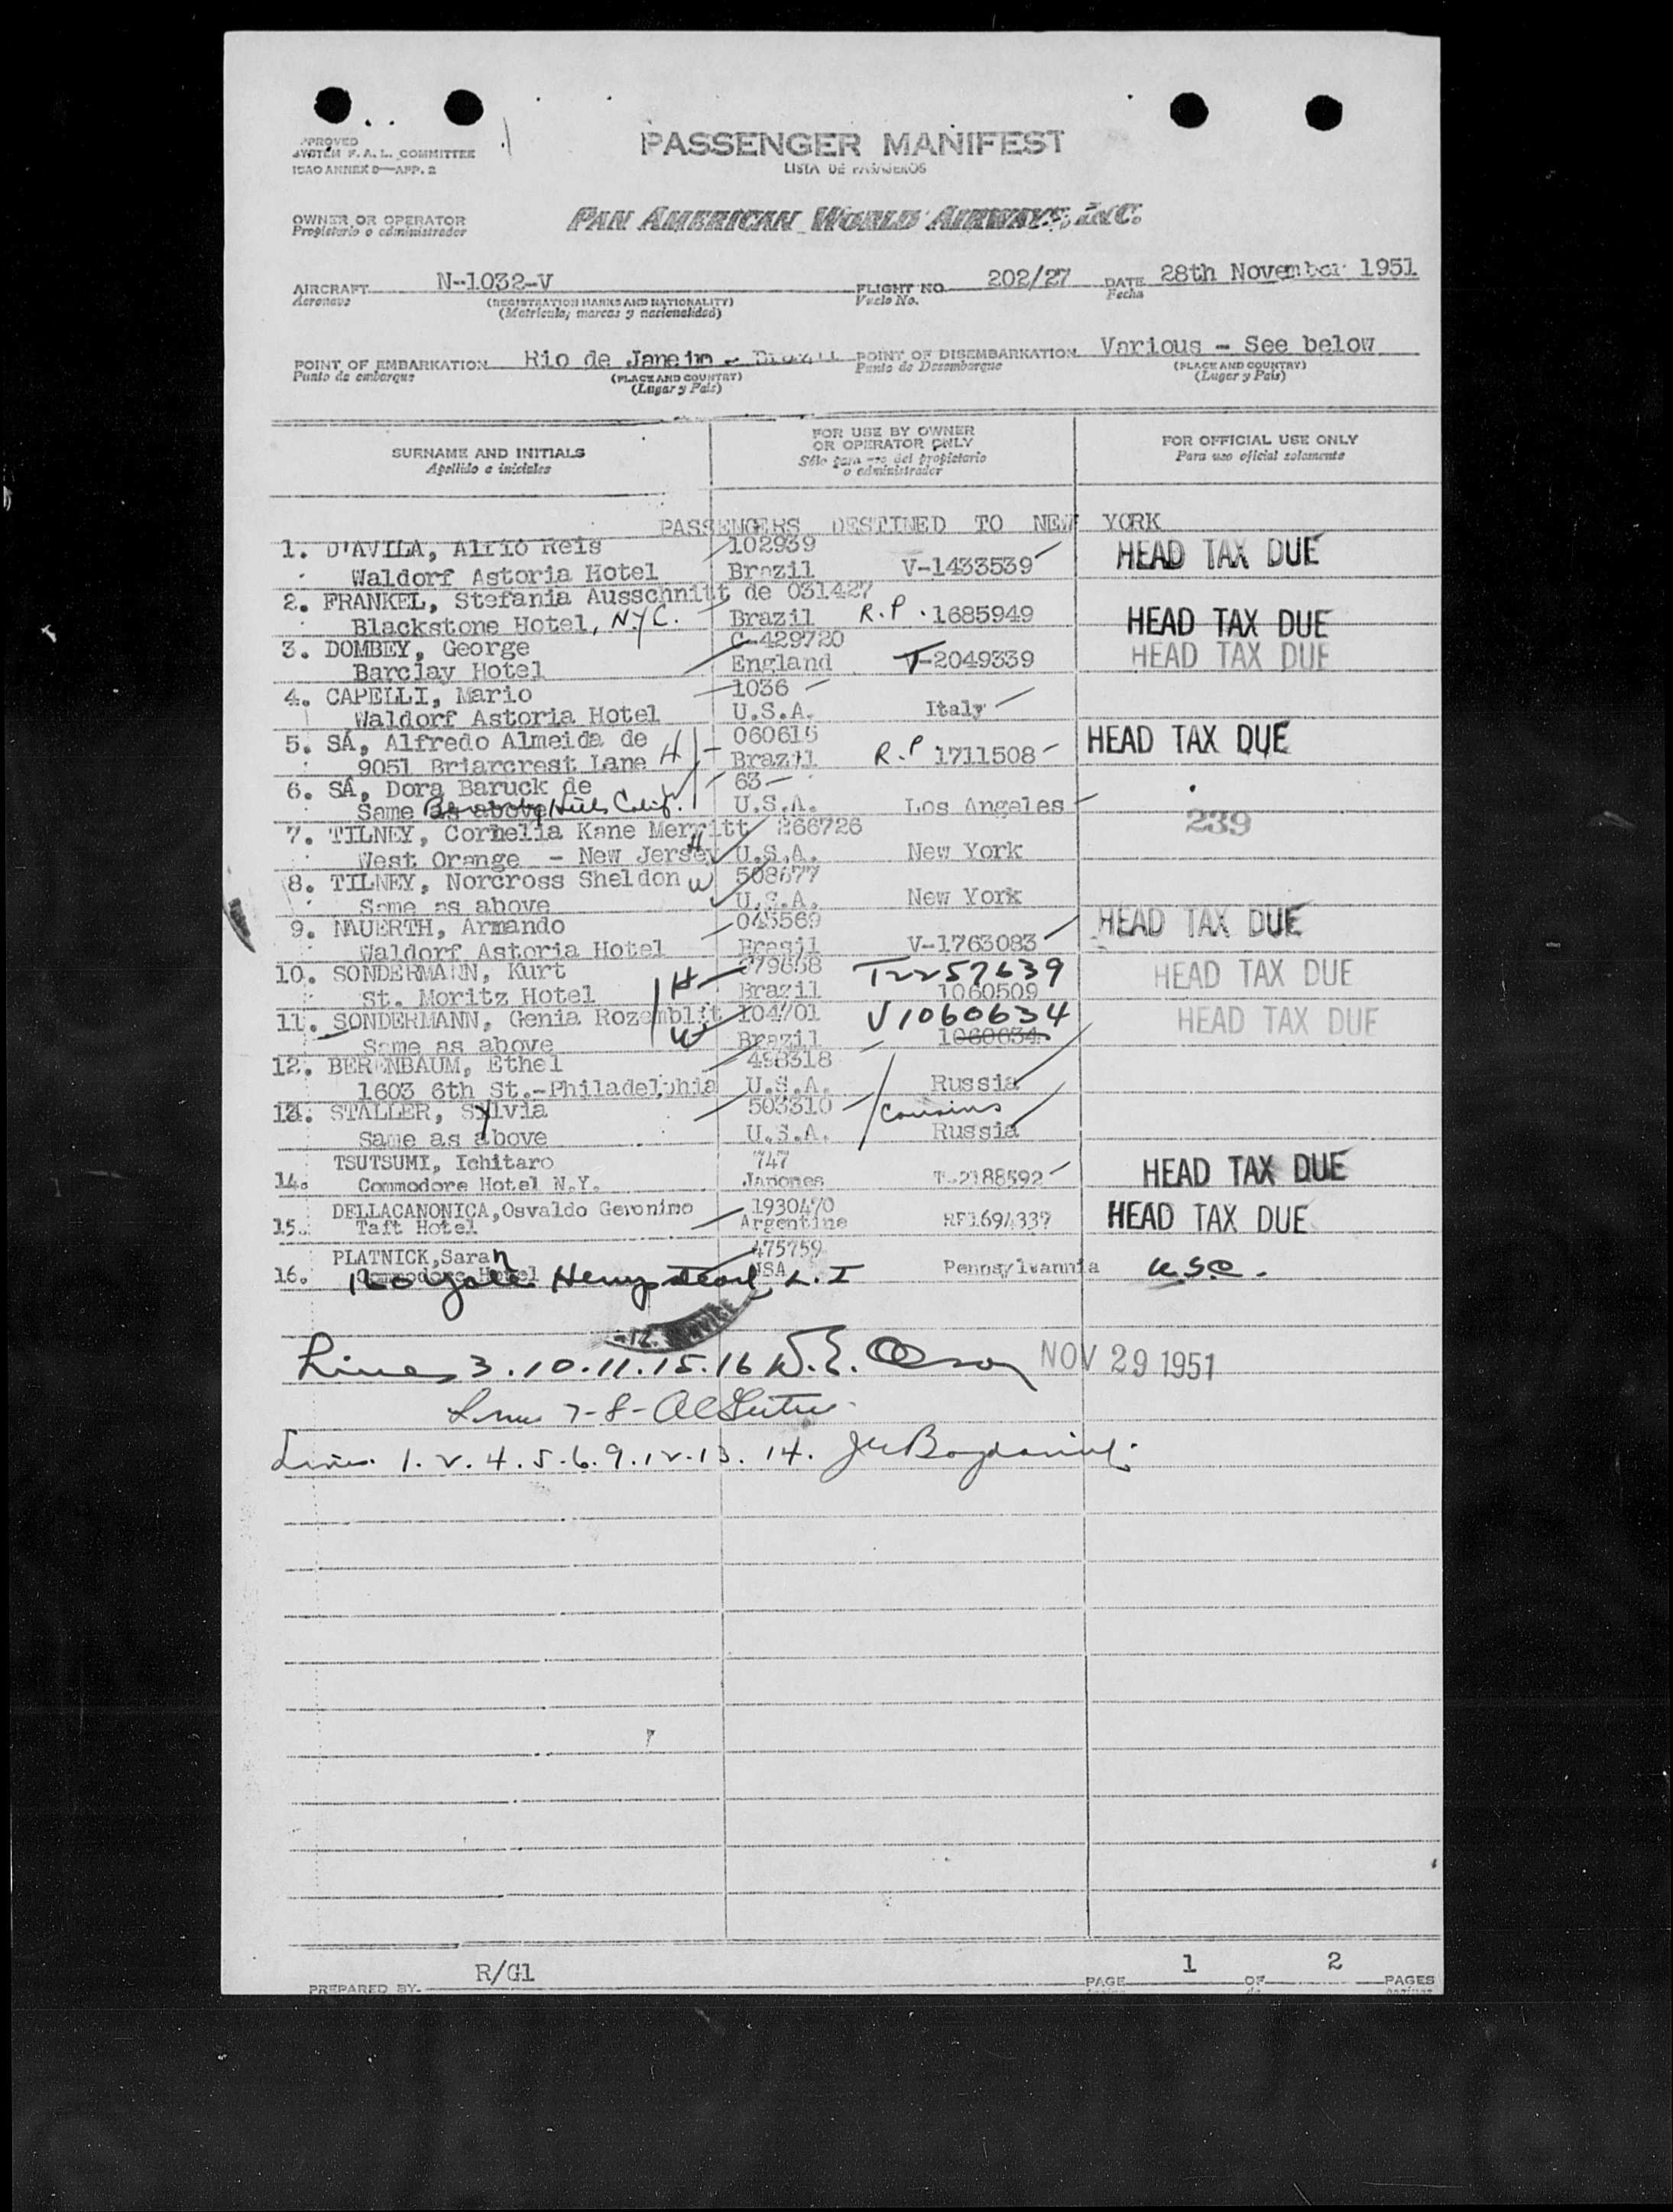 APPROVED
SYSTEM F.A.L. COMMITTEE
ICAO ANNEX 9—APP. 2
PASSENGER MANIFEST
LISTA DE PASAJEROS
OWNER OR OPERATOR
Propietario o administrador
PAN AMERICAN WORLD AIRWAYS, INC.
AIRCRAFT N-1032-V FLIGHT NO. 202/27 DATE 28th November 1951
Aeronave (REGISTRATION MARKS AND NATIONALITY) Vuelo No. Fecha
(Matrícula, marcas y nacionalidad)
POINT OF EMBARKATION Rio de Janeiro - Brazil POINT OF DISEMBARKATION Various - See below
Punto de embarque (PLACE AND COUNTRY) Punto de Desembarque (PLACE AND COUNTRY)
(Lugar y País) (Lugar y País)
SURNAME AND INITIALS
Apellido e iniciales
FOR USE BY OWNER
OR OPERATOR ONLY
Sólo para uso del propietario
o administrador
FOR OFFICIAL USE ONLY
Para uso oficial solamente
PASSENGERS DESTINED TO NEW YORK
1. D'AVILA, Alfio Reis 102939 HEAD TAX DUE
Waldorf Astoria Hotel Brazil V-1433539
2. FRANKEL, Stefania Ausschnitt de 031427
Blackstone Hotel, NYC. Brazil R.P. 1685949 HEAD TAX DUE
3. DOMBEY, George C-429720
Barclay Hotel England T-2049339 HEAD TAX DUE
4. CAPELLI, Mario 1036
Waldorf Astoria Hotel U.S.A. Italy
5. SÁ, Alfredo Almeida de 060615 HEAD TAX DUE
9051 Briarcrest Lane H Brazil R.P 1711508
6. SÁ, Dora Baruck de 63
Same as above Hills Calif. U.S.A. Los Angeles
7. TILNEY, Cornelia Kane Merritt 266726 239
West Orange - New Jersey H U.S.A. New York
8. TILNEY, Norcross Sheldon W 508677
Same as above U.S.A. New York
9. NAUERTH, Armando 045569 HEAD TAX DUE
Waldorf Astoria Hotel Brasil V-1763083
10. SONDERMANN, Kurt H 079838 T2257639 HEAD TAX DUE
St. Moritz Hotel Brazil 1060509
11. SONDERMANN, Genia Rozemblit 104701 V1060634 HEAD TAX DUE
Same as above W Brazil 1060634
12. BERENBAUM, Ethel 498318
1603 6th St.-Philadelphia U.S.A. Russia
13. STALLER, Sylvia 503310 Cousins
Same as above U.S.A. Russia
TSUTSUMI, Ichitaro 747
14. Commodore Hotel N.Y. Japones T-2188592 HEAD TAX DUE
DELLACANONICA, Osvaldo Geronimo 1930470
15. Taft Hotel Argentine RF1694337 HEAD TAX DUE
PLATNICK, Sarah 475759
16. Commodore Hotel USA Pennsylvannia usc.
160 Yale Hempstead L.I
Lines 3.10.11.15.16 W.E. Olson NOV 29 1951
Lines 7-8-
Lines 1.2.4.5.6.9.12.13.14.
PREPARED BY R/Gl PAGE 1 OF 2 PAGES